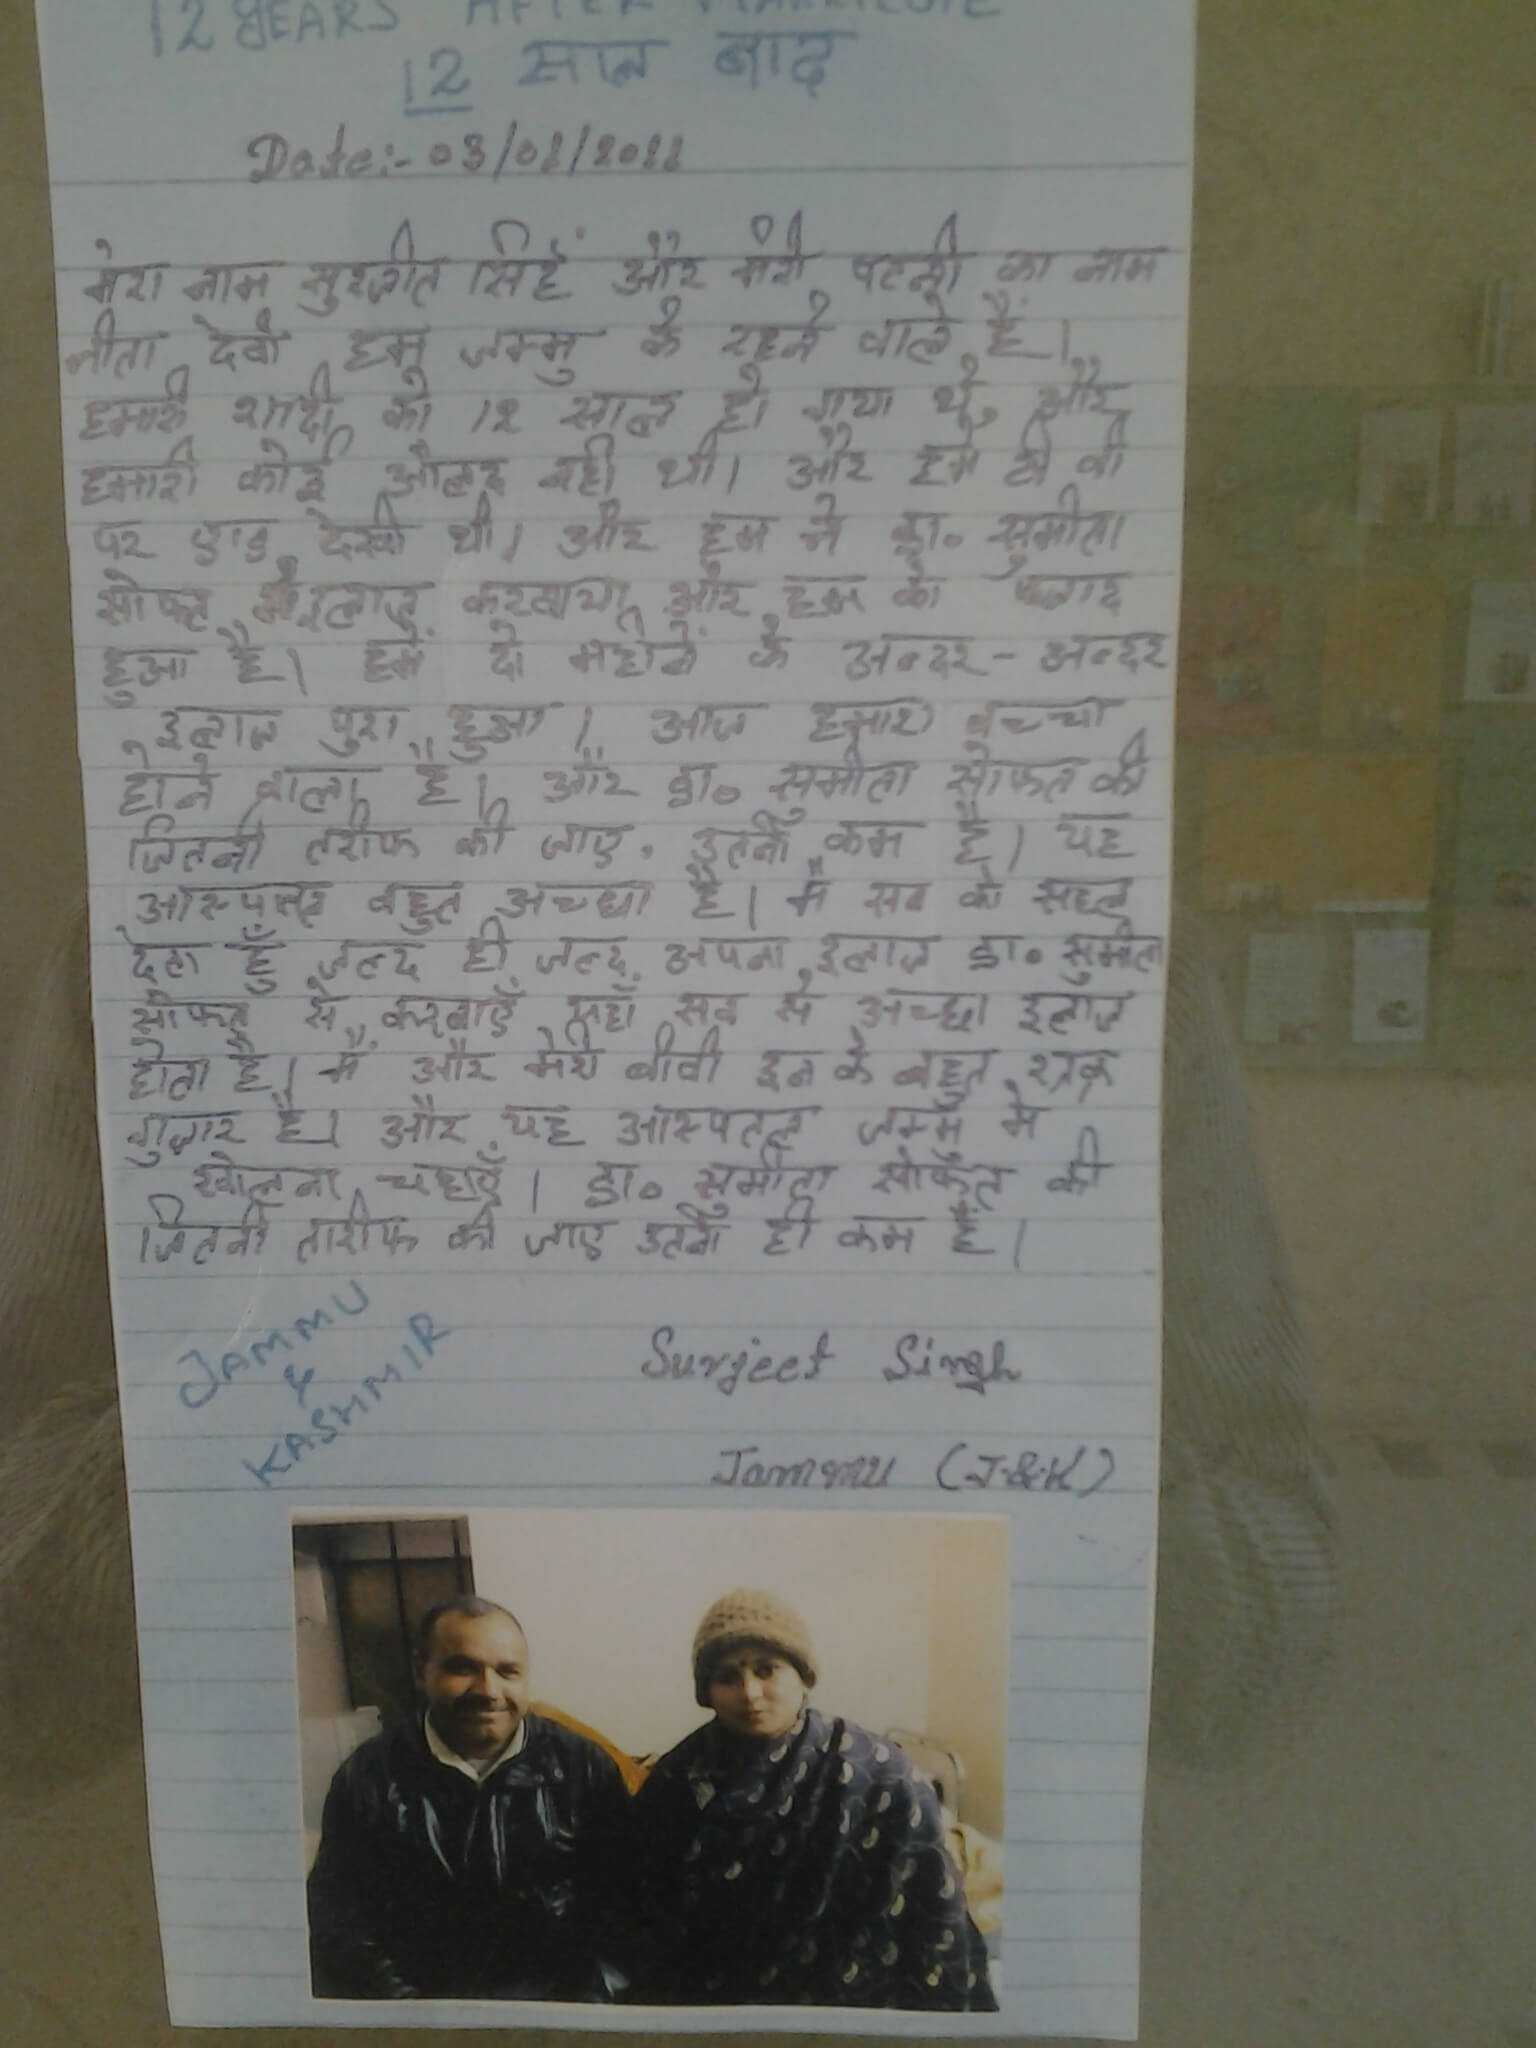 12 YEARS AFTER MARRIAGE
12 साल बाद
Date:- 03/02/2012
मेरा नाम सुरजीत सिहं और मेरी पत्नी का नाम
नीता देवी हम जम्मु के रहने वाले हैं।
हमारी शादी को 12 साल हो गया थे और
हमारी कोई औलद नही थी। और हमे टी वी
पर एाड देखी थी। और हम ने डा॰ सुमीता
सोफत से इलाज करवाया और हम को
हुआ है। हमें दो महीनें के अन्दर-अन्दर
इलाज पुरा हुआ। आज हमारे बच्चा
होने वाला है। और डा॰ सुमीता सोफत की
जितनी तरीफ की जाए. इतनी कम है। यह
आस्पतल बहुत अच्छा है। मैं सब को सहल
देता हूँ जल्द ही जल्द अपना इलाज डा॰ सुमीता
सोफत से करवाएँ यहाँ सब से अच्छा इलाज
होता है। मैं और मेरी बीवी इन के बहुत शुक्र
गुजार है। और यह आस्पतल जम्मु मे
खोलना चहाएँ। डा॰ सुमीता सोफत की
जितनी तारीफ की जाए उतनी ही कम हैं।
JAMMU
&
KASHMIR
Surjeet Singh
Jammu (J.&.K)